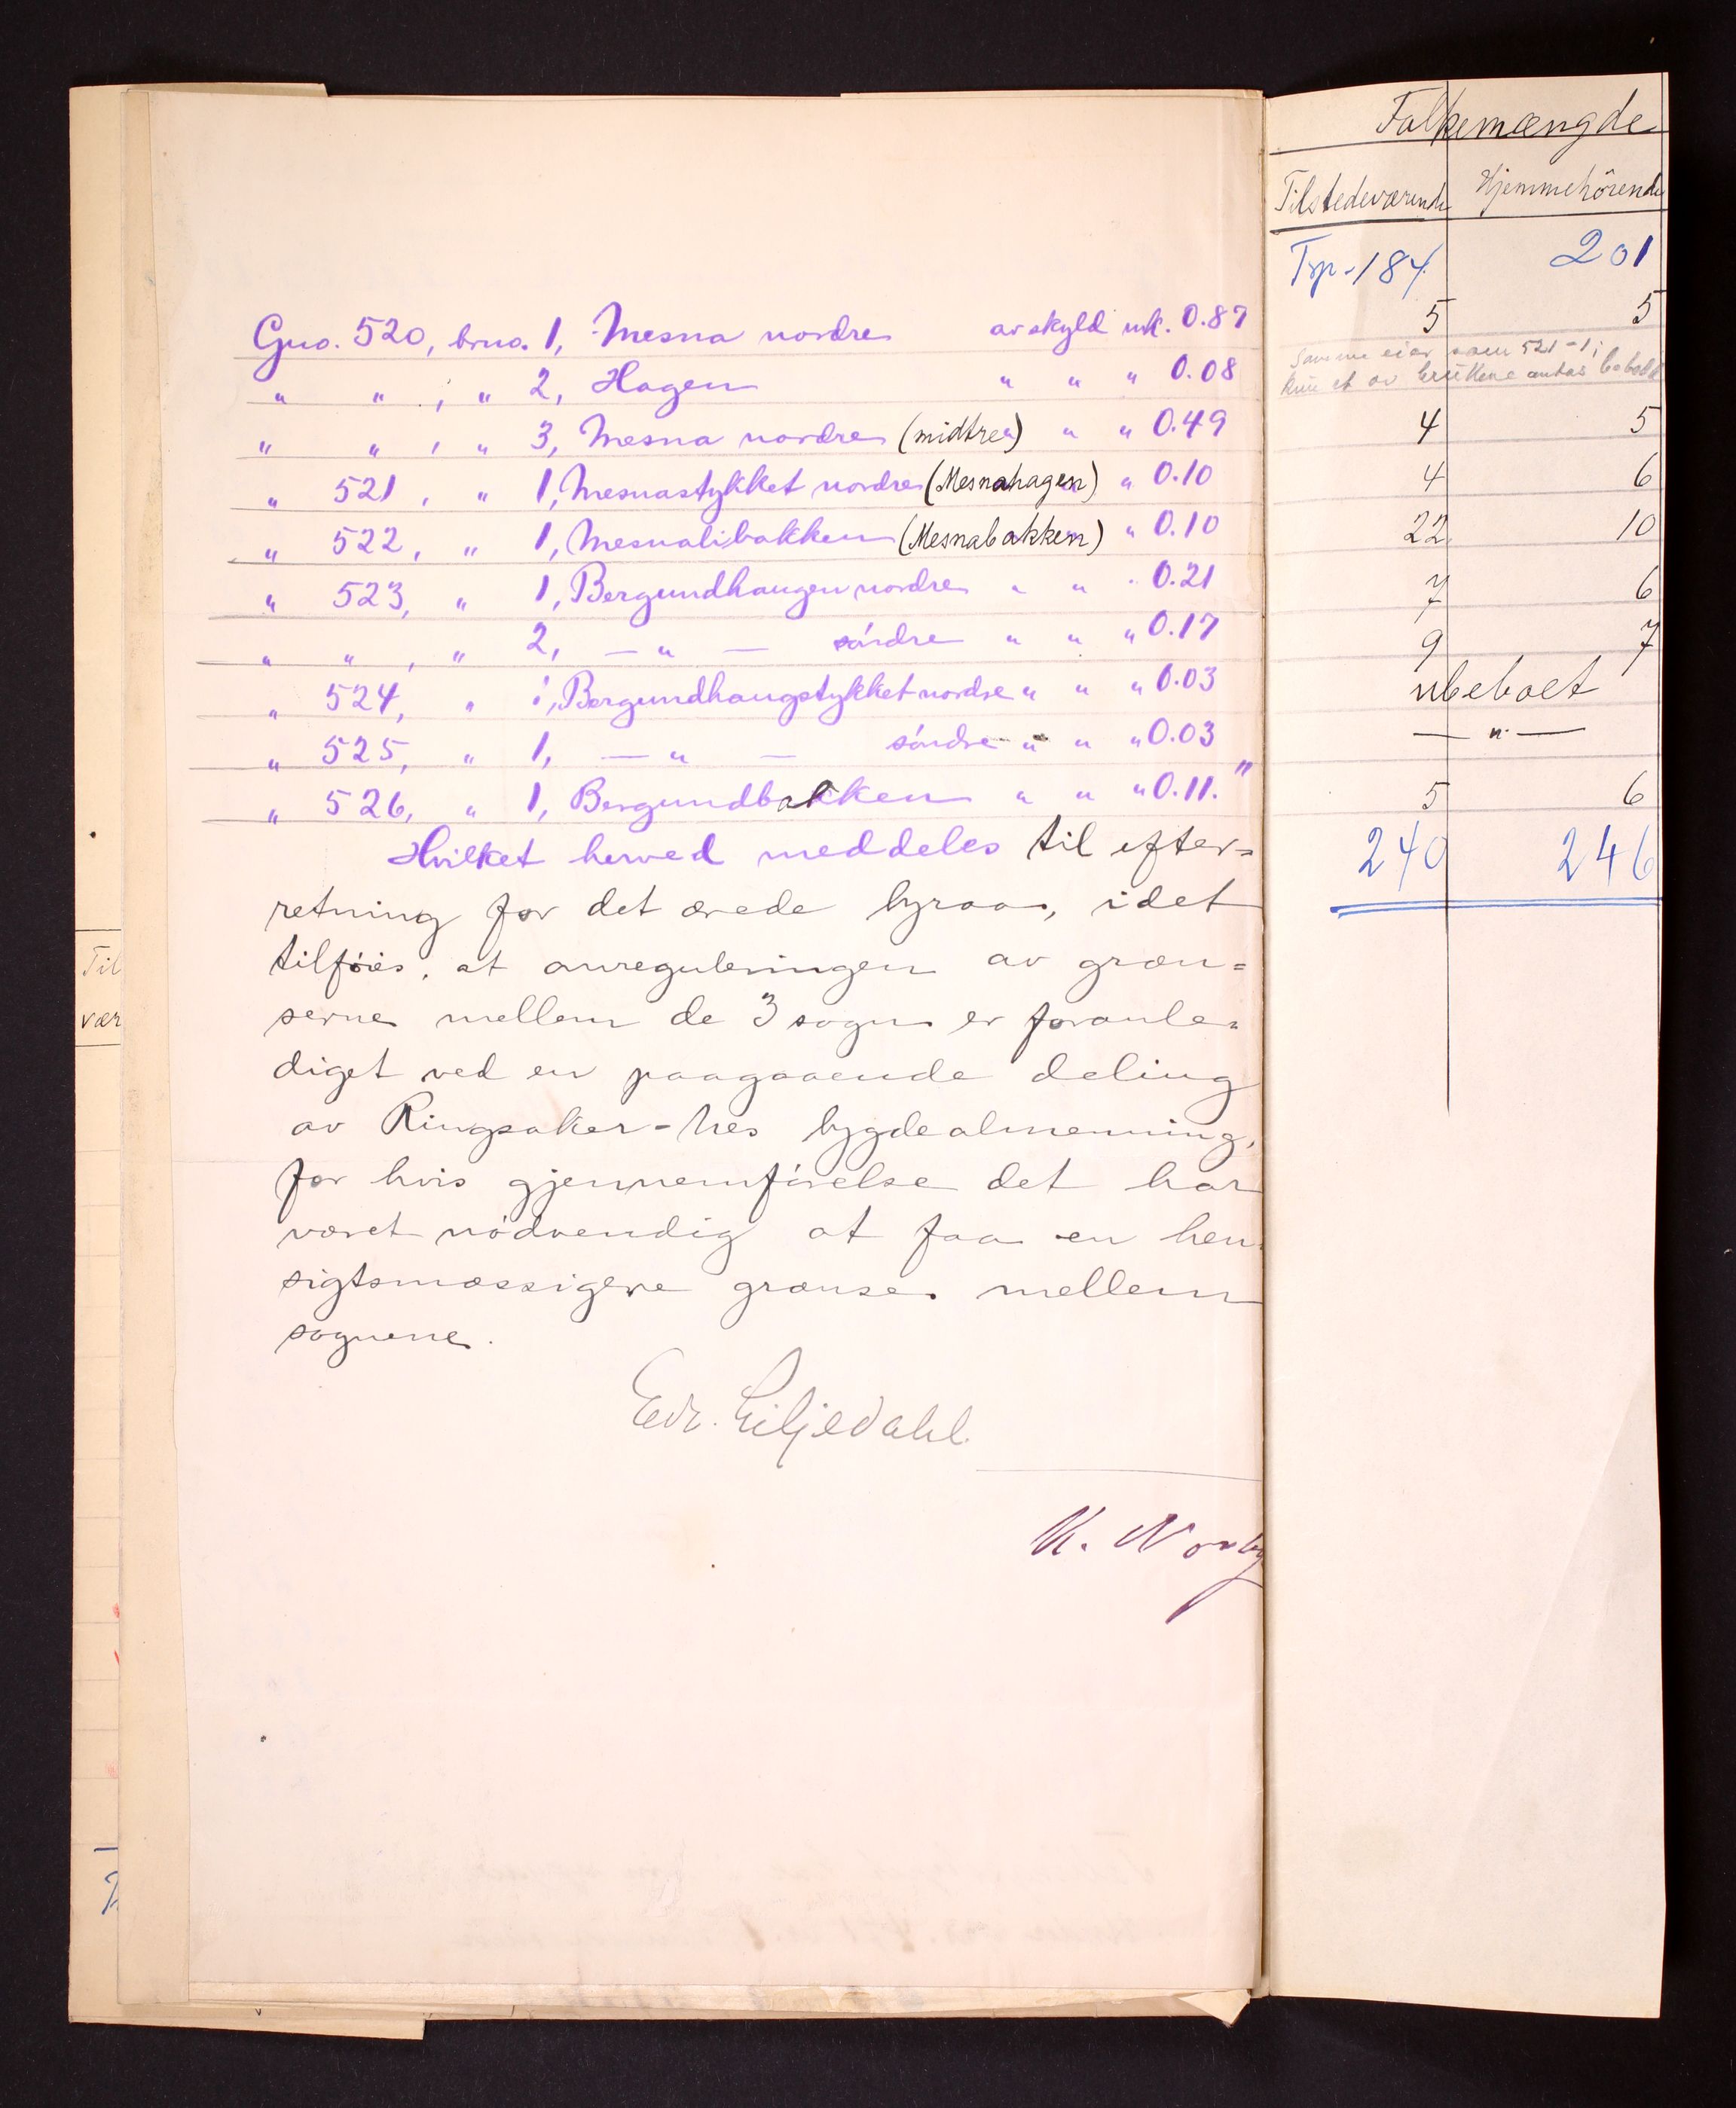 Folkemængde
Tilstedeværende Hjemmehörende
Trp. 184 201
Gno. 520, bruo. 1, Mesna nordre av skyld mk. 0.87 5 5
" " , " 2, Hagen " " " 0.08 Samme eier som 521-1;
kun et av brukene antas bebodd
" " , " 3, Mesna nordre (midtre) " " 0.49 4 5
" 521, " 1, Mesnastykket nordre (Mesnahagen) " 0.10 4 6
" 522, " 1, Mesnalibakken (Mesnabakken) " 0.10 22 10
" 523, " 1, Bergundhaugen nordre " " " 0.21 7 6
" " , " 2, — " — söndre " " " 0.17 9 7
" 524, " 1, Bergundhaugstykket nordre " " " 0.03 ubeboet
" 525, " 1, — " — söndre " " " 0.03 — " —
" 526, " 1, Bergundbakken " " " 0.11." 5 6
240 246
Hvilket herved meddeles til efter=
retning for det ærede byraa, idet
tilföies, at omreguleringen av græn=
serne mellem de 3 sogn er foranle=
diget ved en paagaaende deling
av Ringsaker-Nes bygdealmenning,
for hvis gjennemförelse det har
været nödvendig at faa en hen
sigtsmæssigere grænse mellem
sognene.
Edv. Liljedahl
K. Norby
Til
vær